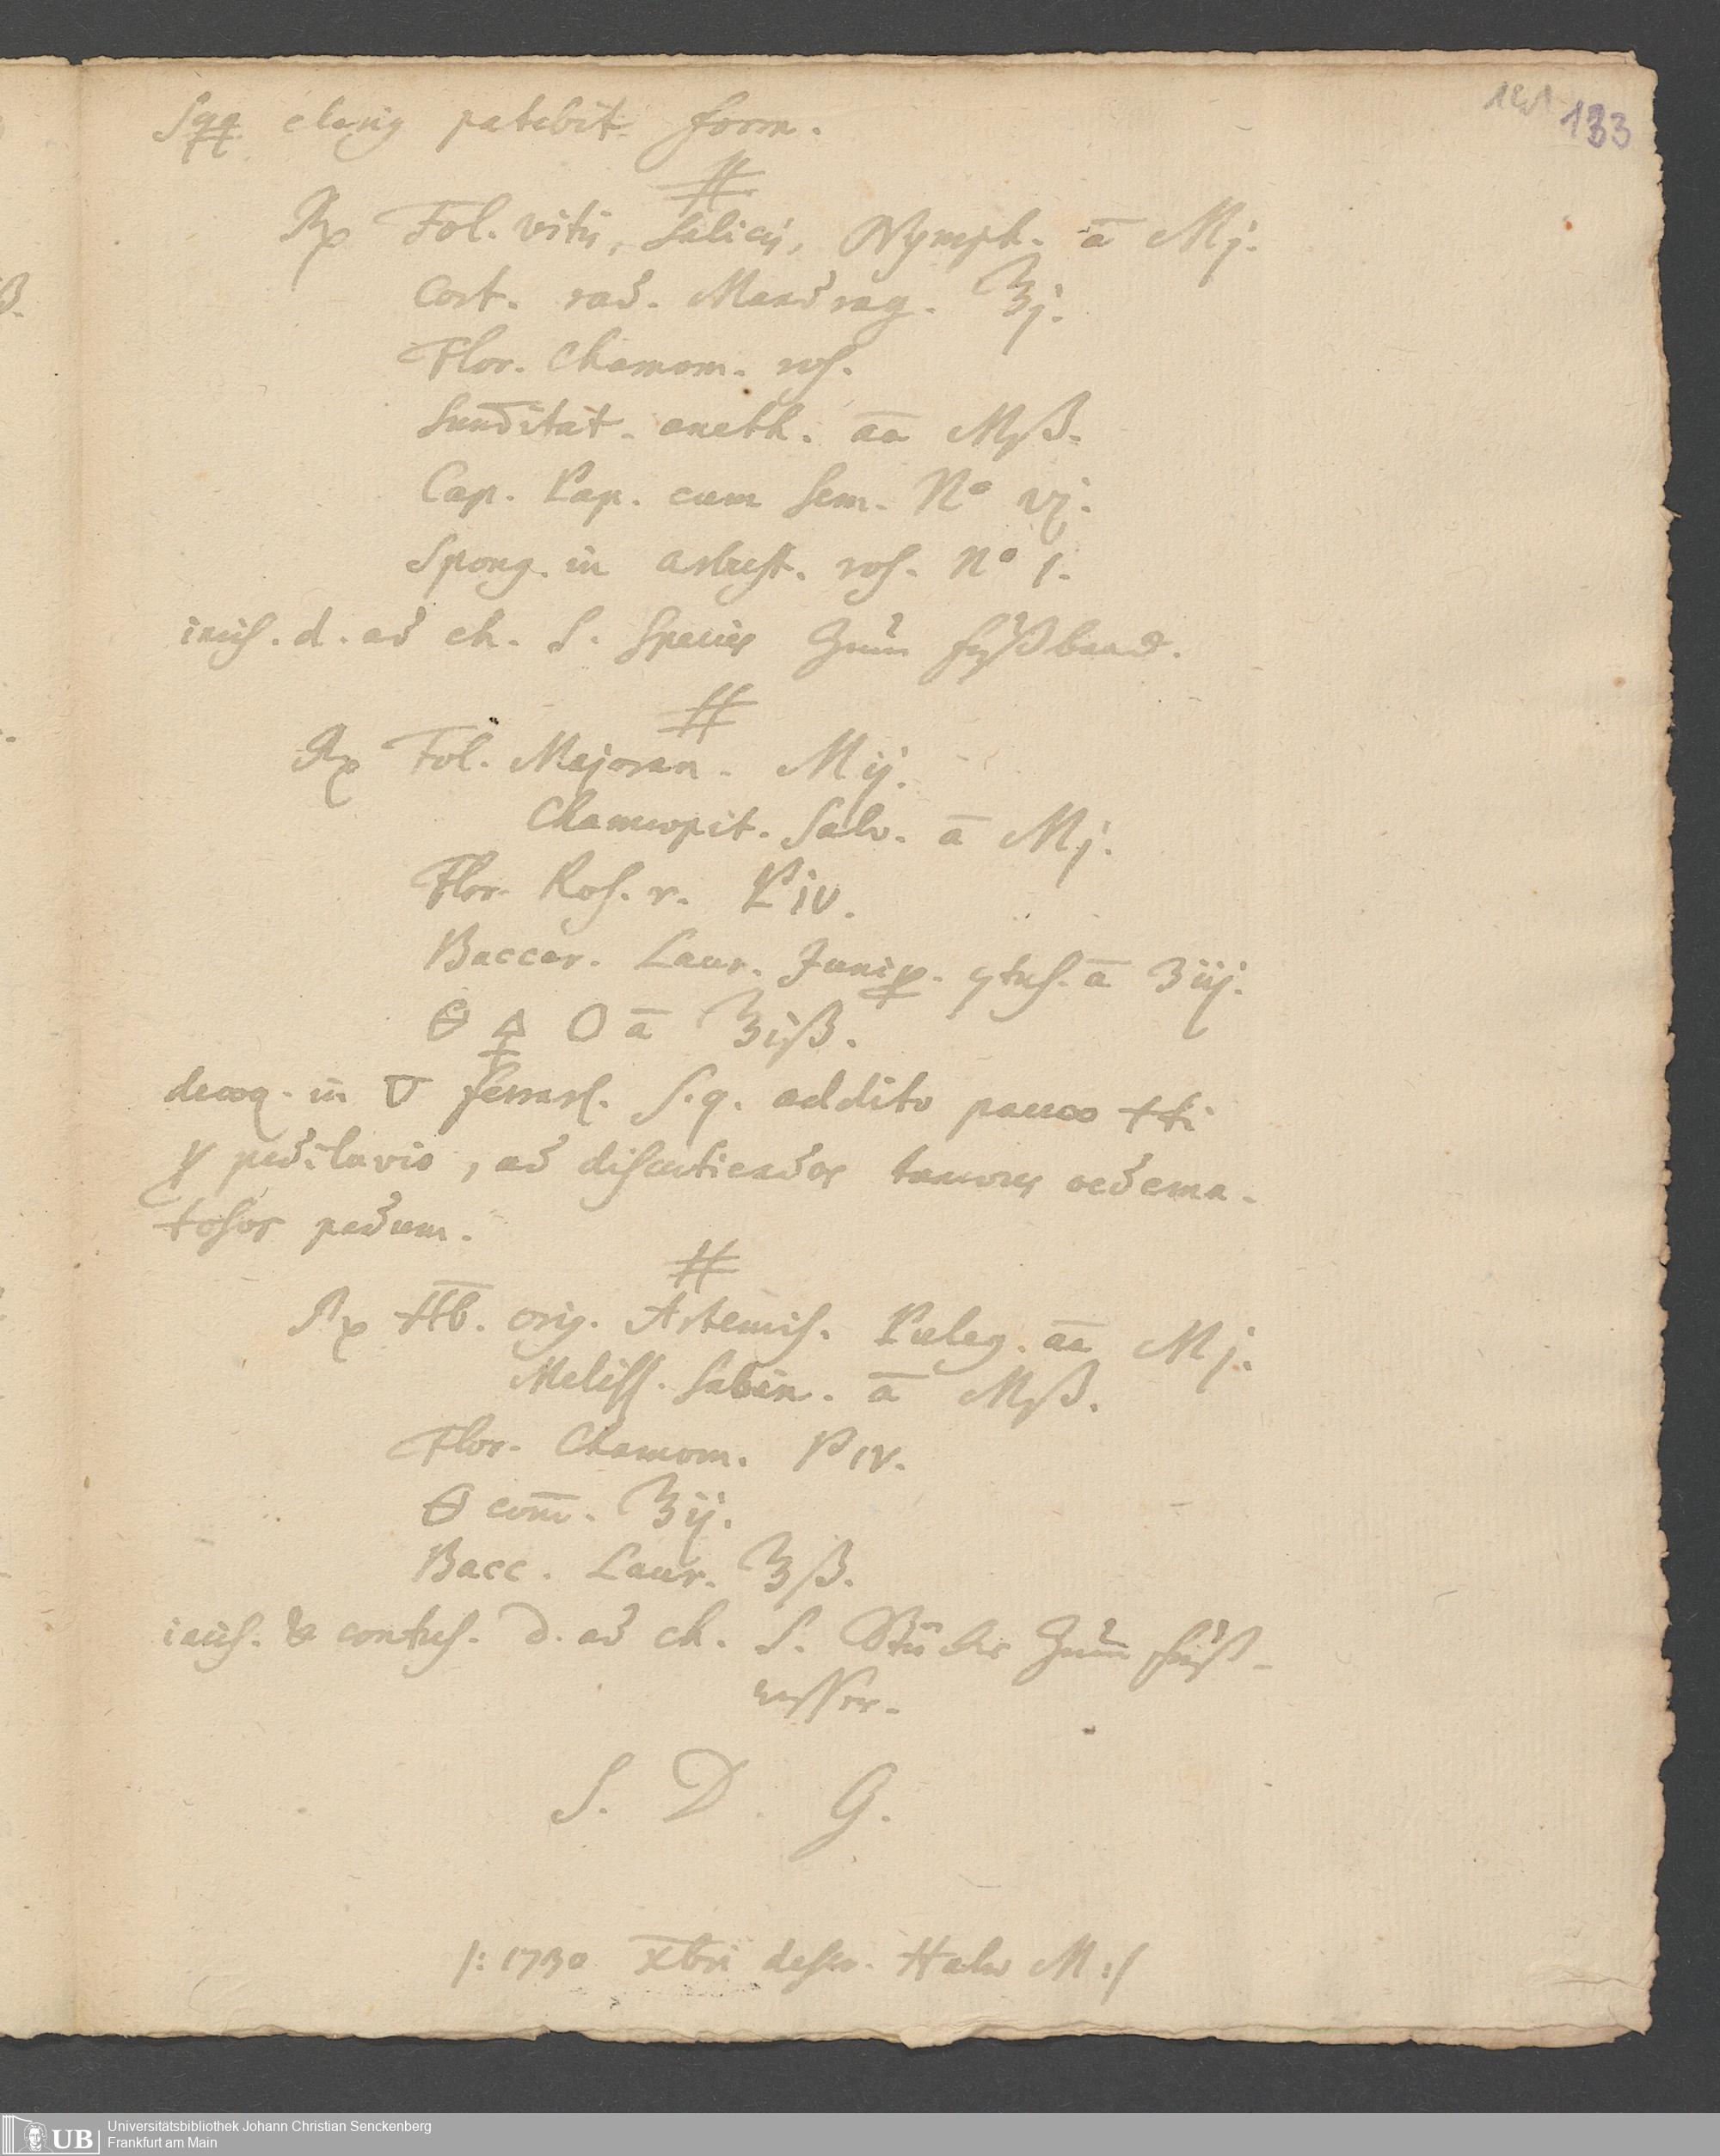 141 133
Sqq. clariꝰ patebit form.
#
Rx Fol. vitis, Salicis, Nymph. ā Mj.
Cort. rad. Mandrag. ℥j.
Flor. Chamom. ros.
Sum̄itat. aneth. āā Mß.
Cap. Pap. cum sem. N° vj.
Spong. in arbust. ros. N° 1.
incis. d. ad ch. S. Species Zum fußbaad.
#
Rx Fol. Majoran. Mij.
Chamæpit. Salv. ā Mj.
Flor. Ros. r. Piv.
Baccar. Laur. Junip. ꝯtus. ā ʒiij.
🜔 🜍 ā ℥iß.
decoq. in 🜄 ferrar. S. q. addito pauco
pedilavio, ad discutiendos tumores oedema-
tosos pedum.
#
Rx Hb. orig. Artemis. Puleg. āā Mj.
Meliss. Sabin. ā Mß.
Flor. Chamom. P iv.
🜔 com̄. ℥ij.
Bacc. Laur. ℥ß.
incis. & contus. d. ad ch. S. Kräuter Zum fuß-
wasser.
S. D. G.
/: 1730 Xbri descr. Halæ M :/
UB Universitätsbibliothek Johann Christian Senckenberg
Frankfurt am Main